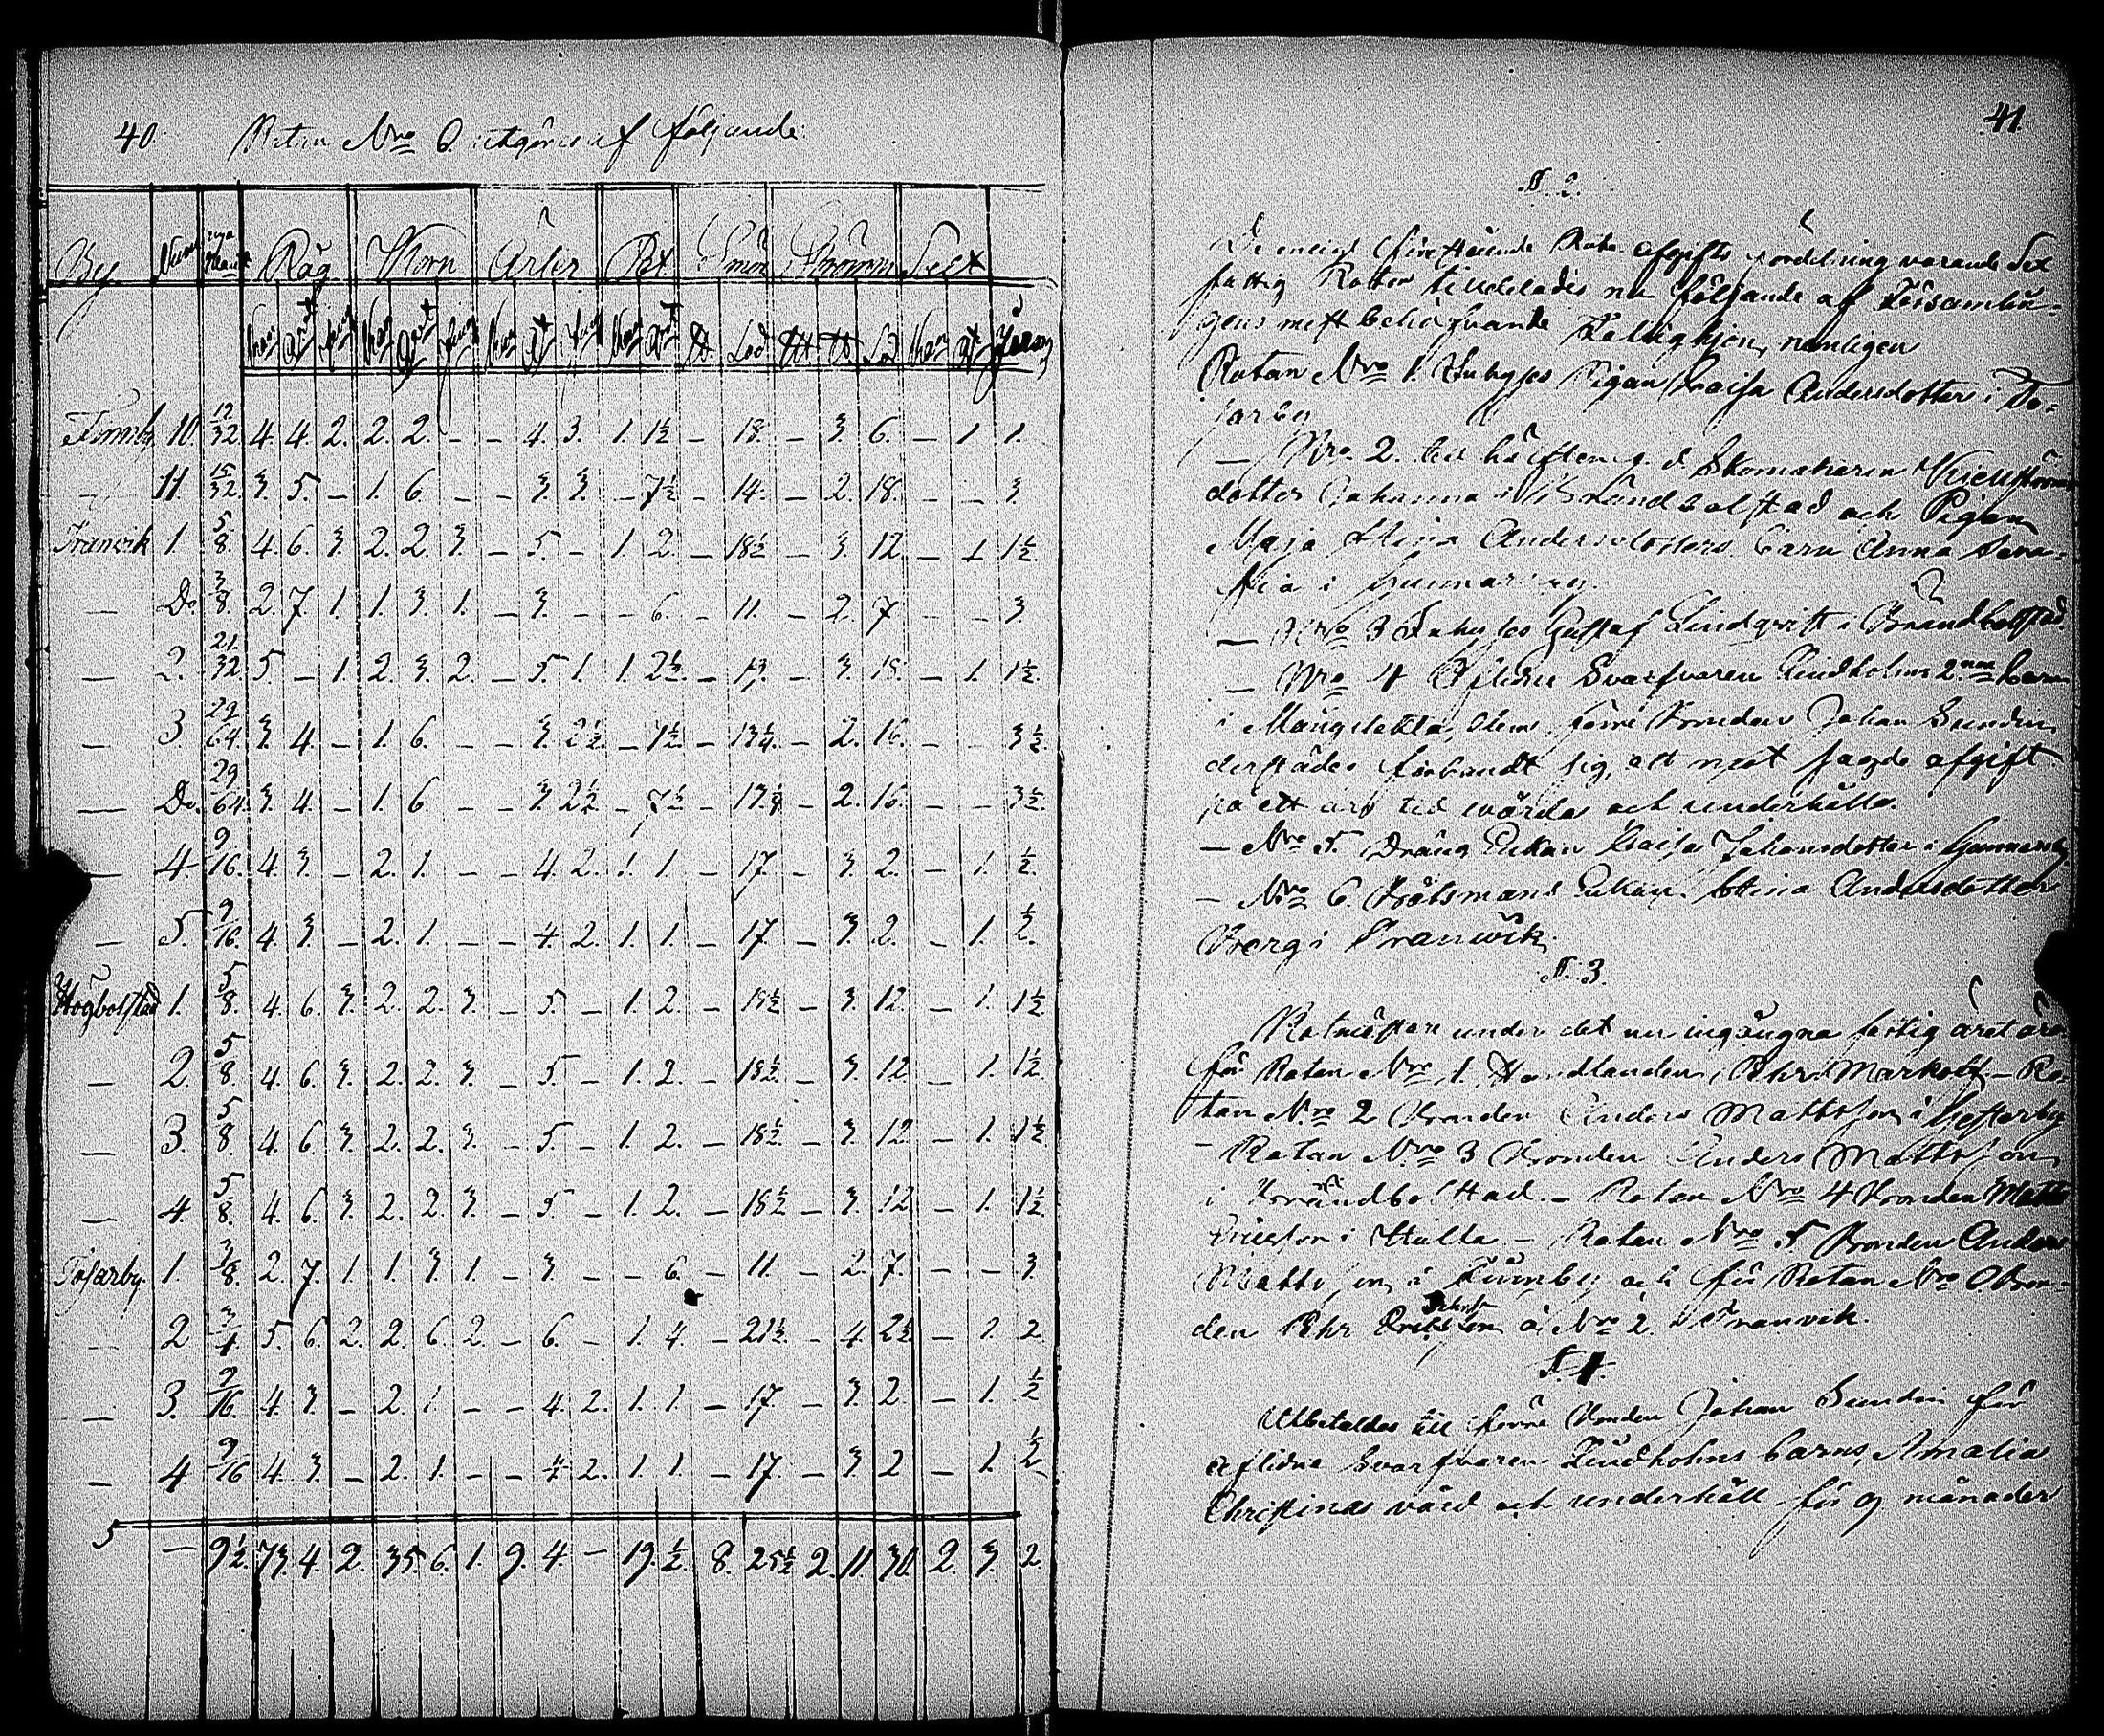 40.
Rotan Nro 6. utgöres af följande:
By. Num Råg Korn Ärter Smör Strömm
Lod Lod
Finnby 10. 12/32 4. 4. 2. 2. 2. - - 4. 3. 1. 1½ - 18. - 3. 6. - 1. 1.
— 11. 15/32 3. 5. - 1. 6 - - 3. 3. - 7½ - 14. - 2. 18. - - 3.
Tranvik 1. 5/8. 4. 6. 3. 2. 2. 3. - 5. - 1. 2. - 18½ - 3. 12. - 1 1½.
— Do. 3/8. 2. 7. 1. 1. 3. 1. - 3. - - 6. - 11. - 2. 7 - - 3.
— 2. 21/32 5. - 1. 2. 3. 2. - 5. 1. 1. 2½. - 19. - 3. 18. - 1. 1½.
— 3. 29/64. 3. 4. - 1. 6. - - 3. 2½. - 7½. - 13¼. - 2. 16. - - 3½.
— Do. 29/64. 3. 4. - 1. 6. - - 3. 2½ - 7½ - - 2. 16. - - 3½.
— 4 9/16. 4. 3. - 2. 1. - - 4. 2. 1. 1. - 17. - 3. 2. - 1. ½.
— 5. 9/16. 4. 3. - 2. 1. - - 4. 2. 1. 1. - 17. - 3. 2. - 1. ½.
Högbolstad 1. 5/8. 4. 6. 3. 2. 2. 3. - 5. - 1. 2. - 18½ - 3. 12. - 1. 1½
— 2. 5/8. 4. 6. 3. 2. 2. 3. - 5. - 1. 2. - 18½. - 3. 12 - 1. 1½.
— 3. 5/8. 4. 6. 3. 2. 2. 3. - 5. - 1. 2. - 18½ - 3. 12. - 1. 1½
— 4. 5/8. 4. 6. 3. 2. 2. 3. - 5. - 1. 2. - 18½ - 3. 12 - 1. 1½.
Tosarby. 1. 3/8. 2. 7. 1. 1. 3. 1. - 3. - - 6. - 11. - 2. 7. - - 3.
— 2 3/4. 5. 6. 2. 2. 6. 2. - 6. - 1. 4. - 21½. - 4. 2½ - 1. 2.
— 3. 9/16. 4. 3. - 2. 1. - - 4. 2. 1. 1. - 17. - 3. 2. - 1. ½
— 4. 9/16 4. 3. - 2. 1. - - 4. 2. 1. 1. - 17. - 3. 2 - 1. ½
— 9½. 73. 4. 2. 35. 6. 1. 9. 4. - 19. ½. 8. 25½ 2. 11. 30. 2. 3. 2.
41.
§. 2.
De enligt förestående Rote afgifts fördelning varande sex
fattig Rotor tilldelades nu följande af Församlin-
gens mest behöfvande Fattighjon, nemligen
Rotan Nro 1. Inhyses Pigan Caisa Andersdotter i To-
sarby
— Nro 2. till hälften f. d. Skomakaren
dotter Johanna i Brändbolstad och Pigan
Maja Stina Andersdotters barn Anna
i Gunnarsby.
— Nro 3 Inhyses Gustaf Lindqvist i Brändbolstad.
— Nro 4 Aflidne Svarfvaren Lindholms 2.ne barn
i Mångstekta, dem förre Bonden Johan Sundin
derstädes förbundit sig, att mot sagde afgift
på ett års tid vårda och underhålla.
— Nro 5. Dräng Enkan Caisa Johansdotter i Gunnarsby
— Nro 6. Båtsmans Enkan Stina Andersdotter
Berg i Tranvik.
§. 3.
Rotmästare under det nu ingångna fattig året äro
för Rotan Nro 1. Handlanden Pehr Markolf - Ro-
tan Nro 2 Bonden Anders Mattsson i Vesterby
- Rotan Nro 3 Bonden Anders Mattsson
i Brändbolstad. - Rotan Nro 4 Bonden Matts
Ericsson i Hulta - Rotan Nro 5 Bonden Anders
Mattsson i Finnby och för Rotan Nro 6. Bon-
den Pehr å Nro 2. i Tranvik.
§. 4.
Utbetaldes till förre Bonden Johan Sundin för
aflidne Svarfvaren Lindholms barns, Amalia
Christinas vård och underhåll för 9 månader